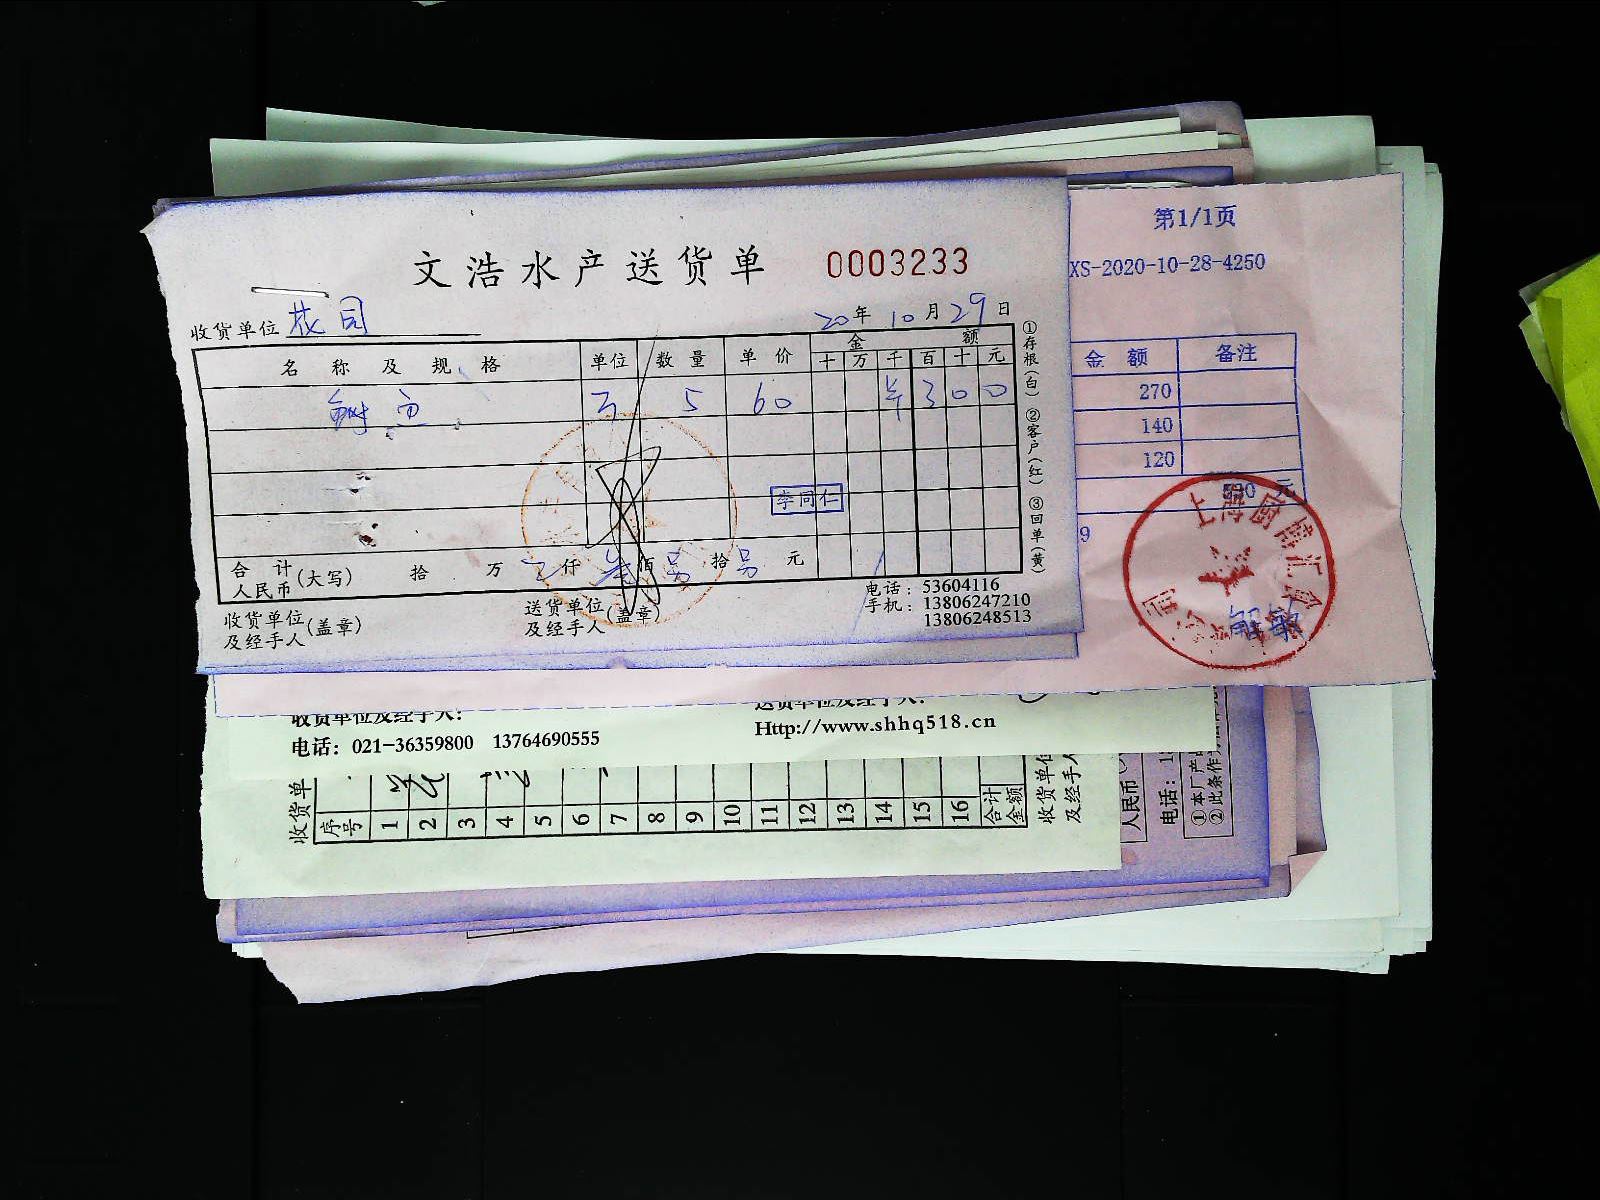 文浩水产送货单 0003233
收货单位
20年 10月 29日
名称及规格 单位 数量 单价 金额
十 万 千 百 十 元
5 60 ¥ 3 0 0
李同仁
合计
人民币(大写) 拾 万 仟 佰 拾 元
收货单位
及经手人(盖章)
送货单位
及经手人(盖章)
电话：53604116
手机：13806247210
13806248513
①存根(白) ②客户(红) ③回单(黄)
第1/1页
XS-2020-10-28-4250
金额 备注
270
140
120
元
9
收货单位及经手人：
电话：021-36359800 13764690555
送货单位及经手人：
Http://www.shhq518.cn
收货单
序号 1 2 3 4 5 6 7 8 9 10 11 12 13 14 15 16 合计金额
收货单位
及经手人
人民币
电话：1
①本厂产
②此条作